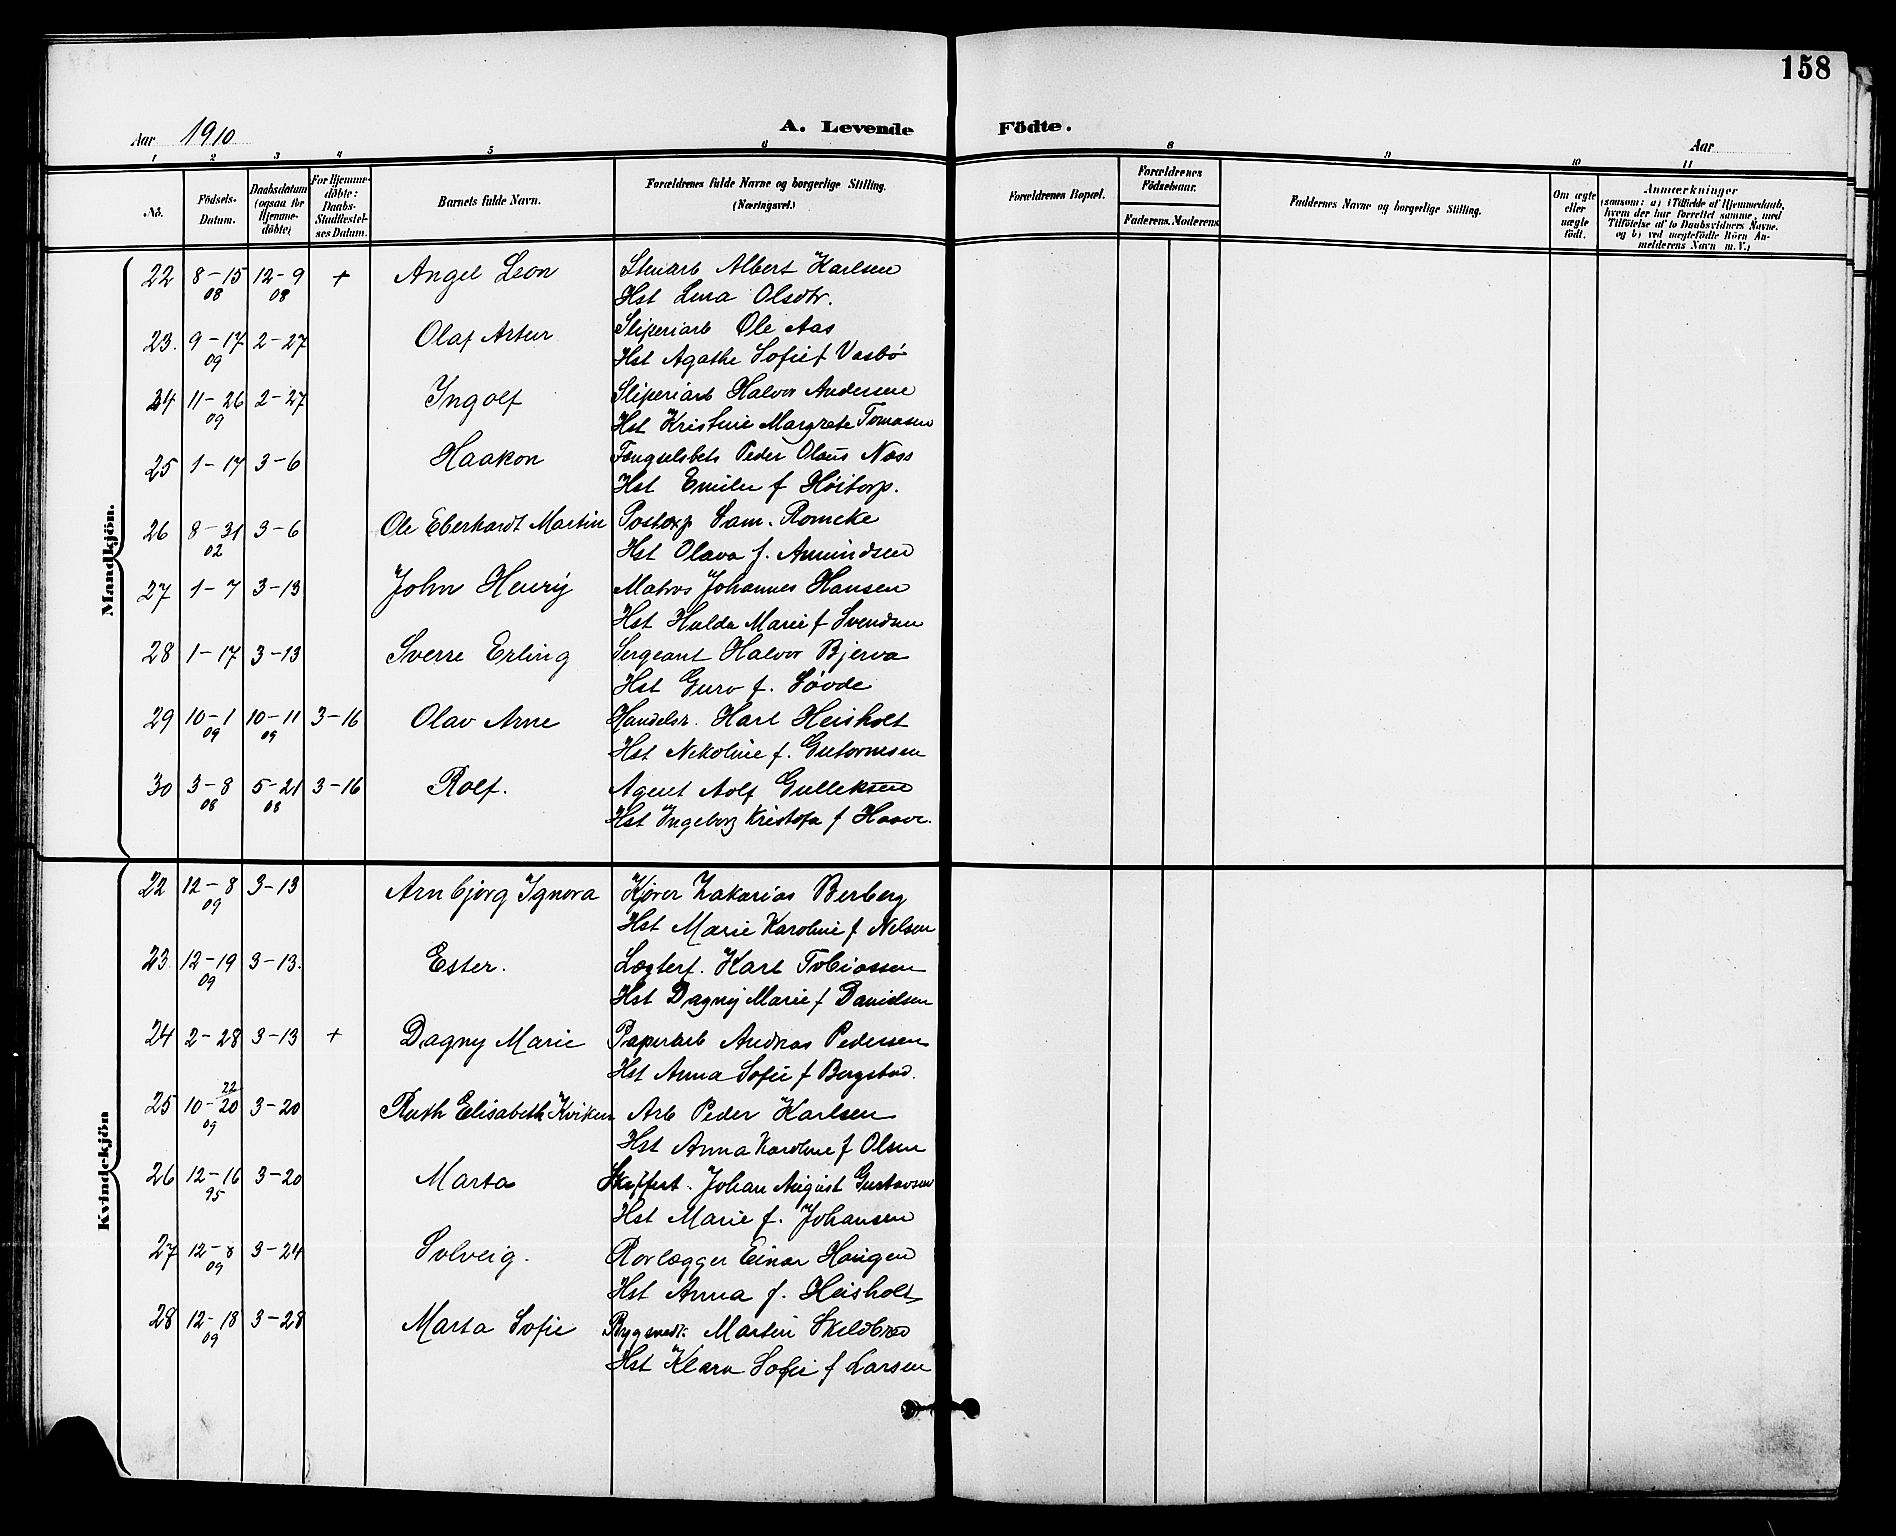 158
Aar 1910 A. Levende Födte. Aar
1 2 3 4 5 6 8 9 10 11
No. Födsels-Datum. Daabsdatum (ogsaa for Hjemme-döbte) For Hjemme-döbte: Daabs-Stadfæstel-ses Datum. Barnets fulde Navn. Forældrenes fulde Navne og borgerlige Stilling. (Næringsvei.) Forældrenes Bopæl. Forældrenes Födselsaar. Faderens. Moderens. Faddernes Navne og borgerlige Stilling. Om ægte eller uægte födt. Anmærkninger (saasom: a) i Tilfælde af Hjemmedaab, hvem der har forrettet samme, med Tilföielse af to Daabsvidners Navne. og b) ved uægtefödte Börn An-melderens Navn m. V.)
Mandkjön.
22 8-15 08 12-9 08 + Angel Leon Stenarb Albert Karlsen
Hst Lena Olsdtr.
23. 9-17 09 2-27 Olaf Artur Sliperiarb Ole Aas
Hst Agathe Sofie f Vasbö
24 11-26 09 2-27 Ingolf Sliperiarb Halvor Andersen
Hst Kristine Margrete Tomasen
25 1-17 3-6 Haakon Fængselsbetj Peder Olaus Næss
Hst Emilie f Höitorp.
26 8-31 02 3-6 Ole Eberhardt Martin Postexp Sam. Romcke
Hst Olava f. Amundsen
27 1-7 3-13 John Henry Matros Johannes Hansen
Hst Hulda Marie f Svendsen
28 1-17 3-13 Sverre Erling Sergeant Halvor Bjerva
Hst Guro f. Sövde
29 10-1 09 10-11 09 3-16 Olav Arne Handelsr. Karl Heisholt
Hst Nikoline f. Gutormsen
30 3-8 08 5-21 08 3-16 Rolf. Agent Aolf Gulleksen
Hst Ingeborg Kristofa f Haave.
Kvindekjön
22 12-8 09 3-13 Arnbjørg Ignora Kjörer Zakarias Berberg
Hst Marie Karoline f Nelsen
23. 12-19 09 3-13. Ester. Lægterf. Karl Tobiassen
Hst Dagny Marie f Danielsen
24 2-28 3-13 + Dagny Marie Paperarb Andreas Pedersen
Hst Anna Sofie f Bergstad.
25 10-20 22 09 3-20 Ruth Elisabeth Kviken Arb Peder Karlsen
Hst Anna Karoline f Olsen
26 12-16 95 3-20 Marta Skiffert. Johan August Gustavsen
Hst Marie f. Johansen
27 12-8 09 3-24 Solveig. Rorlægger Einar Haugen
Hst Anna f. Heisholt
28 12-18 09 3-28 Marta Sofie Bygmedk. Martin Skilbred
Hst Klara Sofie f Larsen